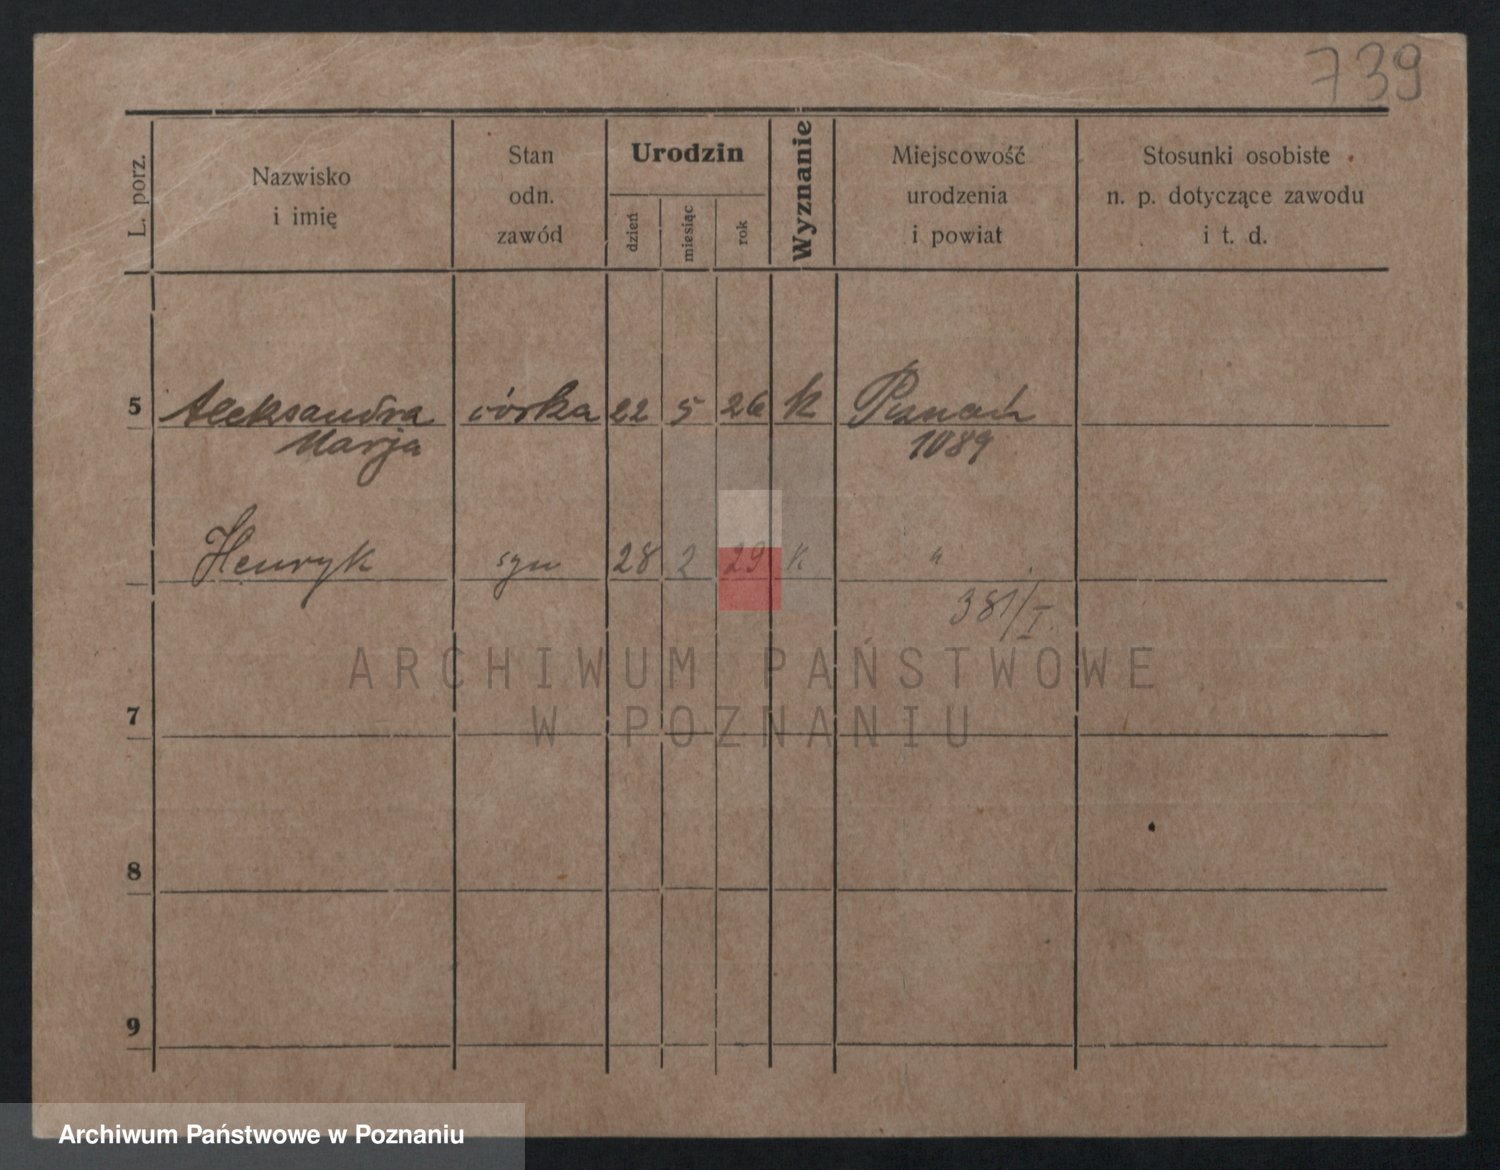 739
L. porz.
Nazwisko
i imię
Stan
odn.
zawód
Urodzin
dzień
miesiąc
rok
Wyznanie
Miejscowość
urodzenia
i powiat
Stosunki osobiste
n. p. dotyczące zawodu
i t. d.
5 Aleksandra córka 22 5 26 k Poznań
Marja 1089
Henryk syn 28 2 29 k "
381/I.
ARCHIWUM PAŃSTWOWE
W POZNANIU
7
8
9
Archiwum Państwowe w Poznaniu